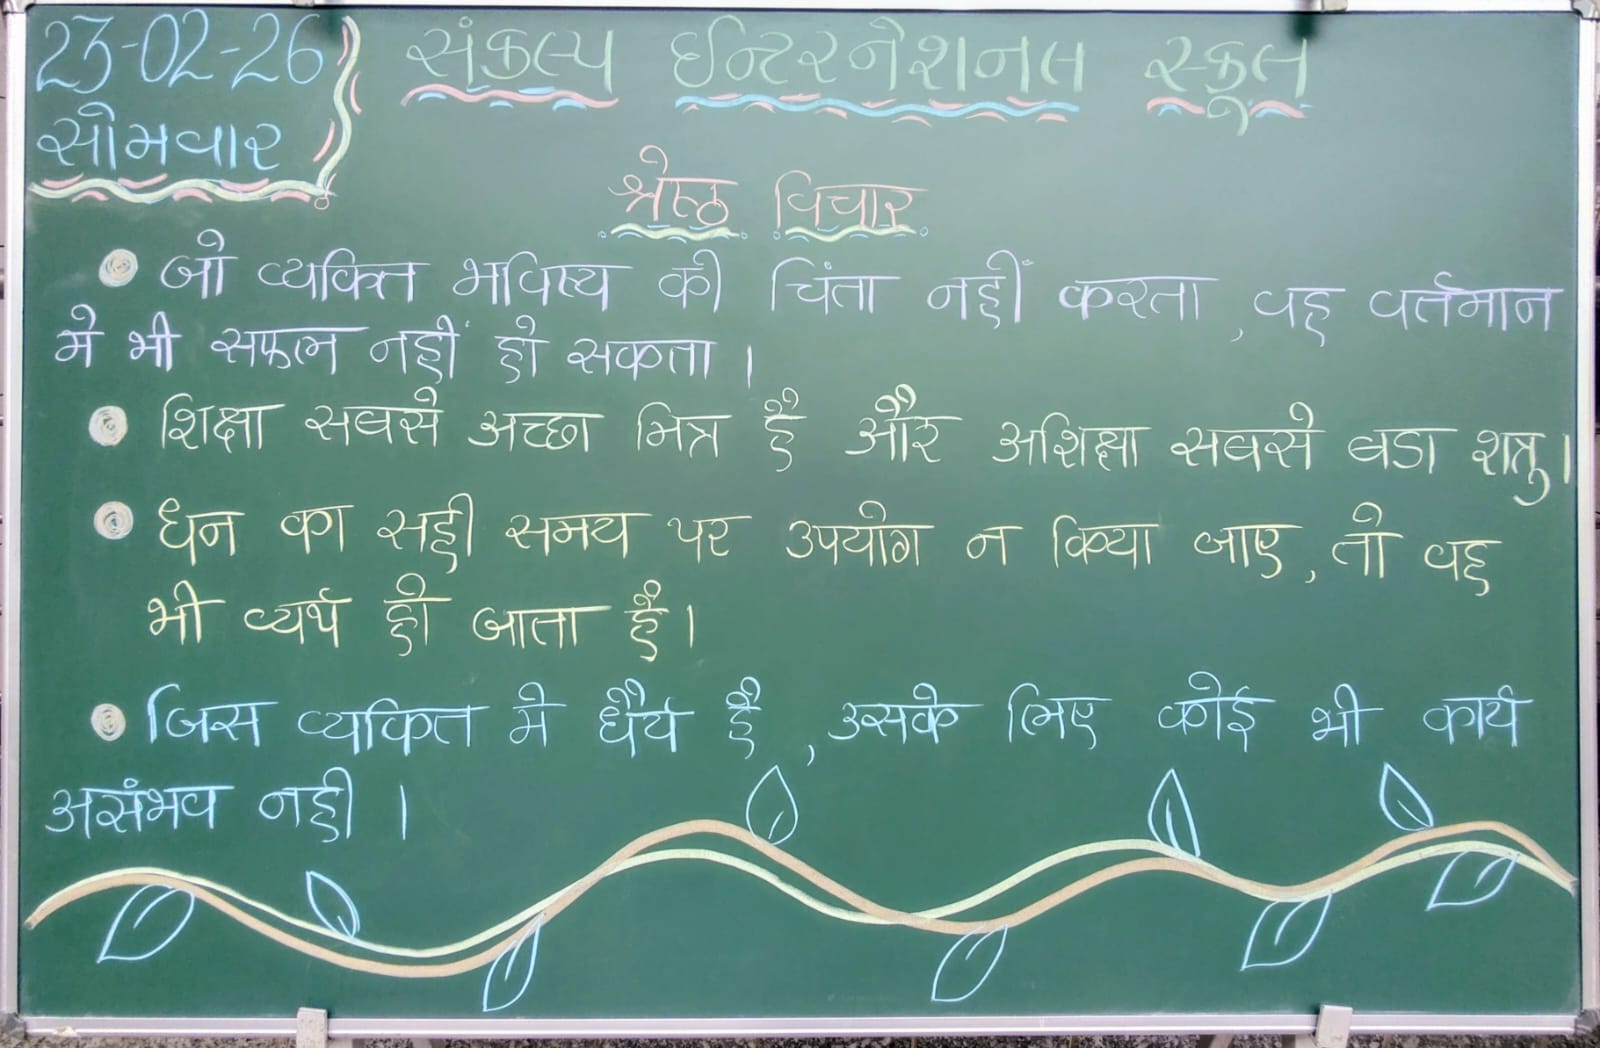 23-02-26
सोमवार
संकल्प ईन्टरनेशनल स्कूल
श्रेष्ठ विचार
जो व्यक्ति भविष्य की चिंता नहीं करता, वह वर्तमान
मे भी सफल नहीं हो सकता।
शिक्षा सबसे अच्छा मित्र है और अशिक्षा सबसे बडा शत्रु।
धन का सही समय पर उपयोग न किया जाए, तो वह
भी व्यर्थ हो जाता है।
जिस व्यकित मे धैर्य है, उसके लिए कोई भी कार्य
असंभव नही।